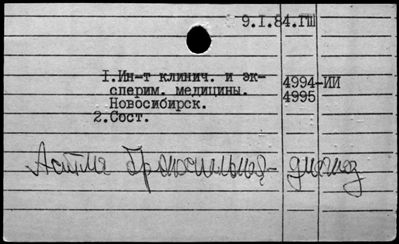 9.I.84.ГШ
I.Ин-т клинич. и эк-
сперим. медицины.
4994-ИИ
Новосибирск.
4995
2.Сост.
Астма бронхиальная - диагноз